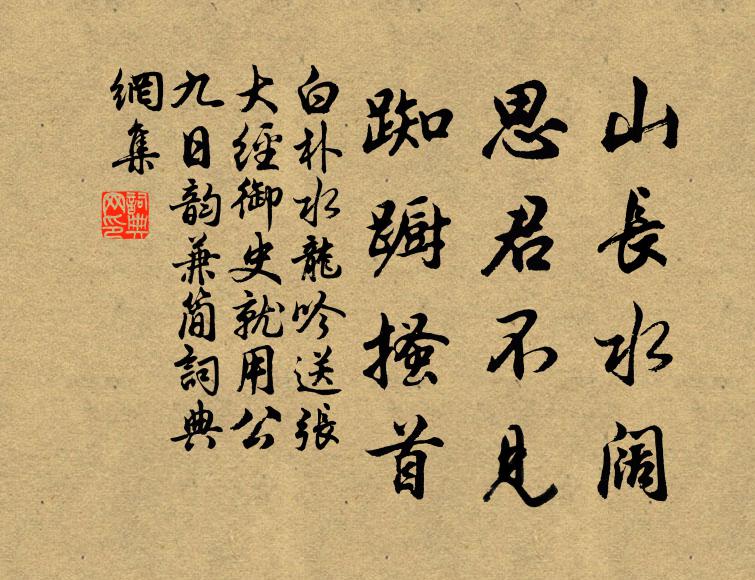 山長水阔
思君不見
踟蹰搔首
白朴水龍吟送張
大經御史就用公
九日韵兼簡詞典
網集
詞典
网印